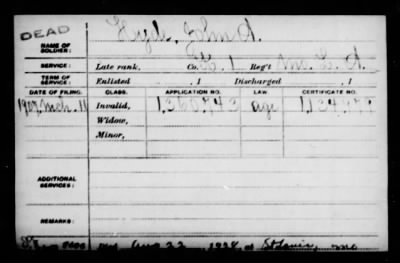 DEAD
NAME OF SOLDIER: Hyde, John A.
SERVICE: Late rank, Co. 1 Reg't Mo. L. A.
TERM OF SERVICE: Enlisted , 1 Discharged , 1
DATE OF FILING. CLASS. APPLICATION NO. LAW. CERTIFICATE NO.
1907 Mch. 11 Invalid, 1,360,743 age
Widow,
Minor,
ADDITIONAL SERVICES:
REMARKS:
Aug 22, 1928, at St Louis, Mo